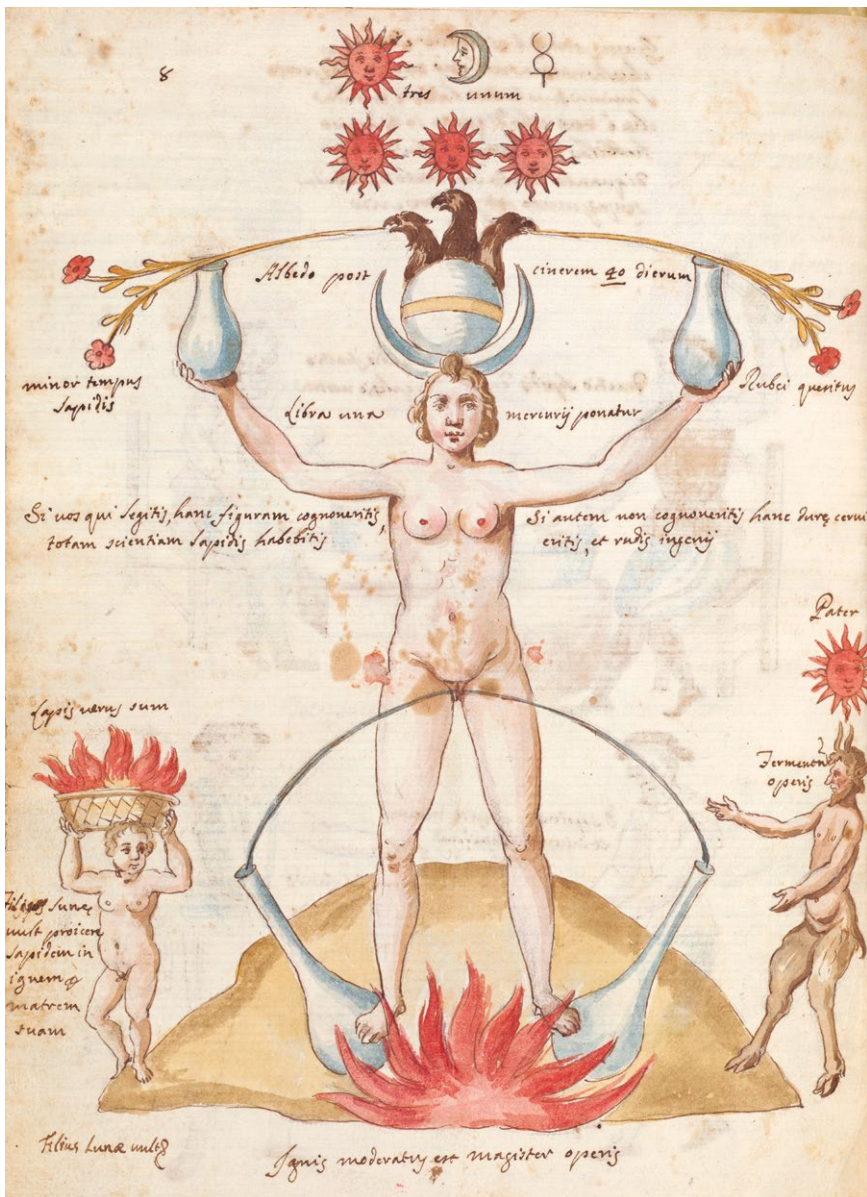 8
tres unum
Albedo post cinerem 40 dierum
minor tempus
lapidis
Rubei queritus
Libra una mercurij ponatur
Si vos qui legitis, hanc figuram cognoveritis,
totam scientiam lapidis habebitis
Si autem non cognoveritis hanc durę cervi
eritis, et rudis ingenij
Pater
Lapis verus sum
Fermentũ
operis
Filius lunę
vult proicere
lapidem in
ignem
matrem
suam
Filius Lunæ vult
Ignis moderatus est magister operis